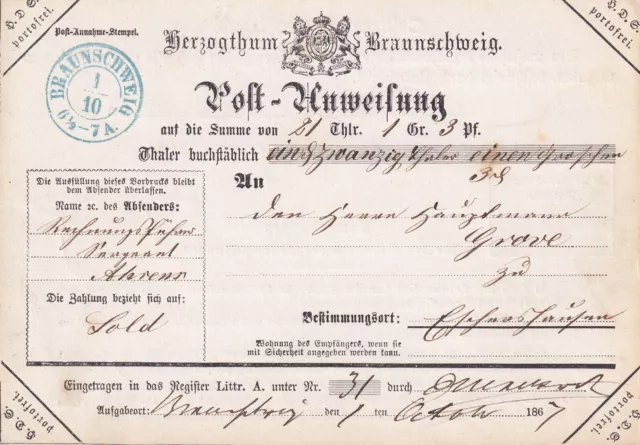 H. D. S.
portofrei.
H. D. S.
portofrei.
Post-Annahme-Stempel.
Herzogthum Braunschweig.
BRAUNSCHWEIG
1
10
6½-7 A.
Post-Anweisung
auf die Summe von 21 Thlr. 1 Gr. 3 Pf.
Thaler buchstäblich einundzwanzig Thaler einen Groschen
3 ₰
Die Ausfüllung dieses Vordrucks bleibt
dem Absender überlassen.
Name ꝛc. des Absenders:
Rechnungsführer
Sergeant
Ahrens
Die Zahlung bezieht sich auf:
Sold
An
den Herrn Hauptmann
Grove
zu
Bestimmungsort: Eschershausen
Wohnung des Empfängers, wenn sie
mit Sicherheit angegeben werden kann:
Eingetragen in das Register Littr. A. unter Nr. 31 durch
Aufgabeort: Braunschweig den 1 ten Octob 1867
H. D. S.
portofrei.
H. D. S.
portofrei.